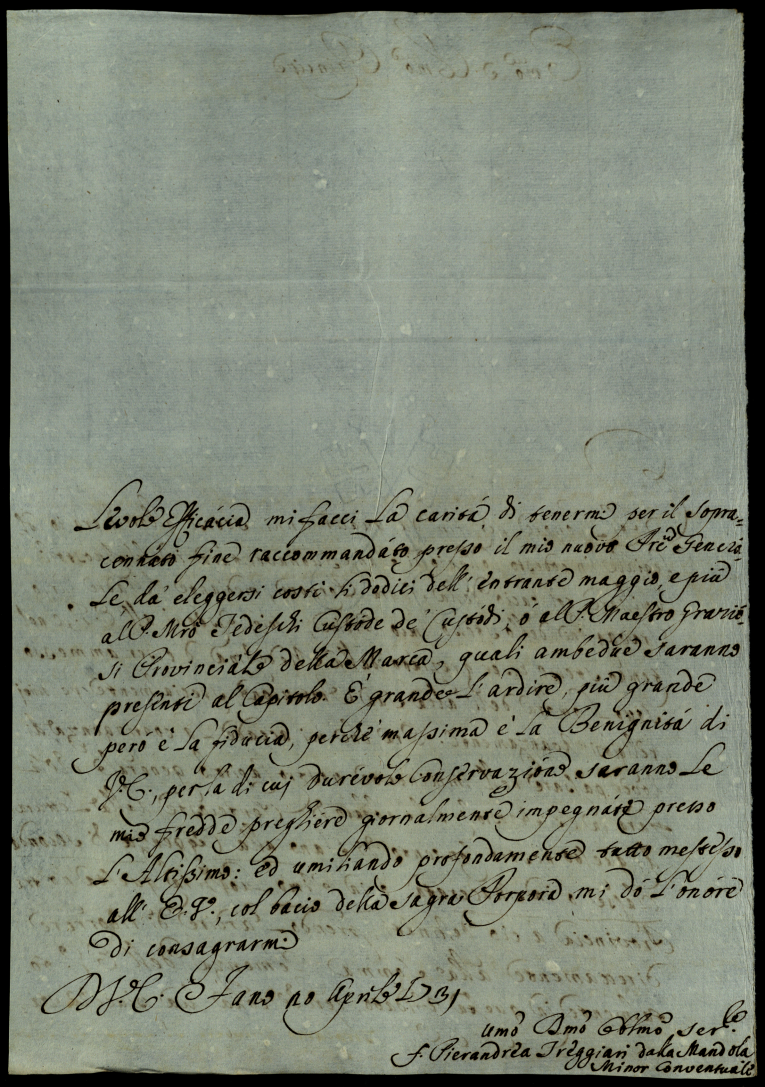 levole Efficacia mi facci la caritá di tenermi per il sopra=
cennato fine raccommandato presso il mio nuovo Pre Genera=
le da eleggersi costi li dodici dell' entrante maggio, e più
al P. Mro Tedeschi Custode de' Custodi, ó al P. Maestro Grazio=
si Provinciale della Marca, quali ambedue saranno
presenti al Capitolo. É grande l'ardire, più grande
peró é la fiducia, perche' massima é la Benignitá di
V.E., per la di cui durévole Conservazione saranno le
mie fredde preghiere giornalmente impegnate presso
L'Altissimo: ed umiliando profondamente tutto me stesso
all' E.V., col bacio della sagra Porpora mi dó l'onore
di consagrarmi
D.V.E. Fano 10 Aprile 1731
Umo Dmo Obblmo serle
f. Pierandrea Treggiari dalla Mandola
Minor Conventuale